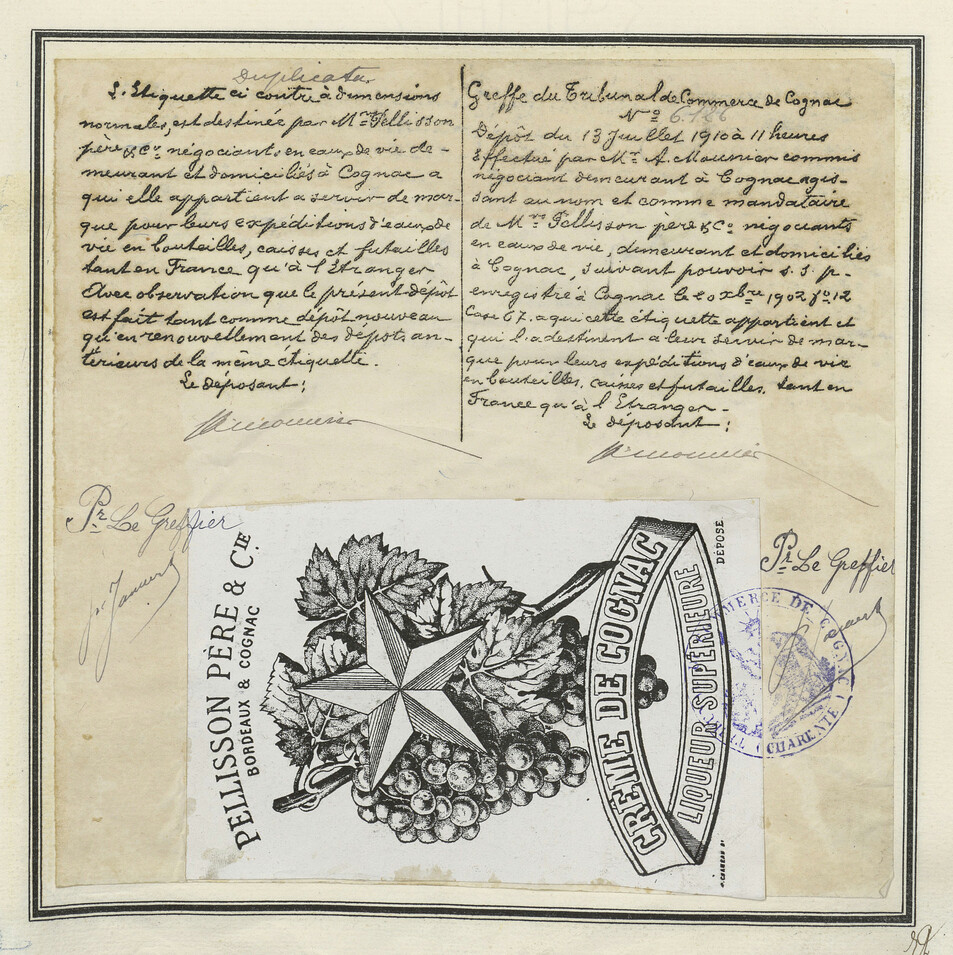 Duplicata
L'Etiquette ci contre à dimensions
normales, est destinée par Mrs Pellisson
père & Co négociants en eaux de vie de-
meurant et domiciliés à Cognac a
qui elle appartient a servir de mar-
que pour leurs expéditions d'eaux de
vie en bouteilles, caisses et futailles
tant en France qu'à l'Etranger
Avec observation que le présent dépôt
est fait tant comme dépôt nouveau
qu'en renouvellement des dépots an-
térieurs de la même étiquette.
Le déposant;
Greffe du Tribunal de Commerce de Cognac
No 6.186
Dépôt du 13 Juillet 1910 à 11 heures
Effectué par Mr A. Mounier commis
négociant demeurant à Cognac agis-
sant au nom et comme mandataire
de Mrs Pellisson père & Co négociants
en eaux de vie, demeurant et domiciliés
à Cognac, suivant pouvoir s. s. p.
enregistré à Cognac le xbre 1902 fo 12
Case 67. a qui cette étiquette appartient et
qui l'a destinent a leur servir de mar-
que pour leurs expéditions d'eaux de vie
en bouteilles, caisses et futailles, tant en
France qu'à l'Etranger-
Le déposant;
Pr Le Greffier
Pr Le Greffier
PELLISSON PÈRE & CIE
BORDEAUX & COGNAC
CRÈME DE COGNAC
LIQUEUR SUPÉRIEURE
DÉPOSÉ
COMMERCE DE COGNAC
(CHARENTE)